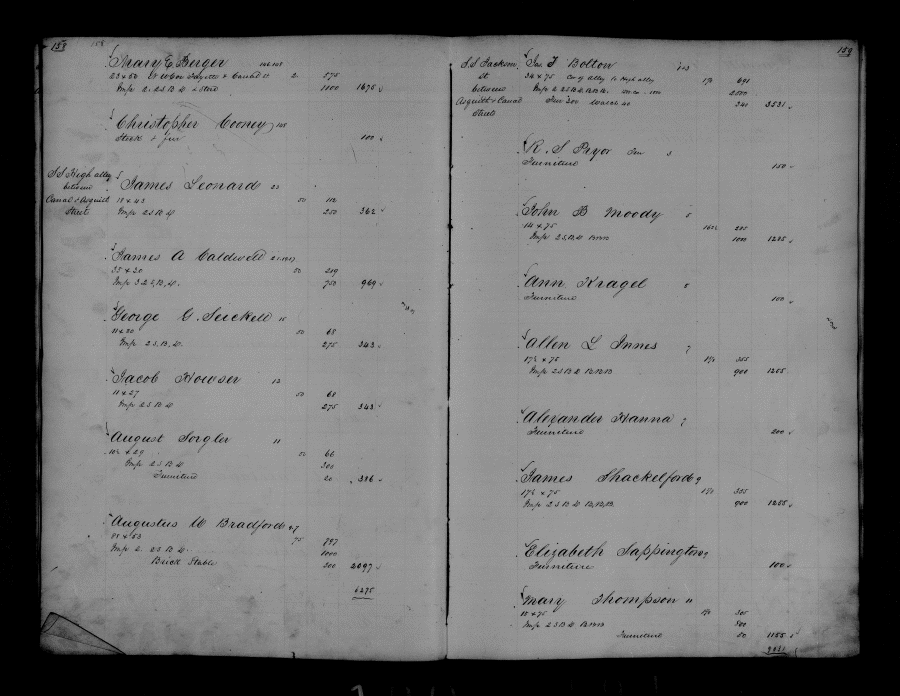 158
158
Mary E. Berger 166.168
23 x 50 Cor Fayette & Canal St 575
Imp 2. 2 S B D & Store 1100 1675
Christopher Cooney 168
Stock & fur 100
S.S High alley
between
Canal & Asquith
Street
James Leonard 23
18 x 43 50 112
Imp 2 S B D 250 362
James A Caldwell
35 x 30 50 219
Imp 3 2 S, B, D. 750 969
George G. Seickell 15
11 x 30 50 68
Imp 2 S, B, D. 275 343
Jacob Howser 13
11 x 27 50 68
Imp 2 S B D 275 343
August Sorgler 11
x 29 50 66
Imp 2 S B D 300
Furniture 20 386
Augustus W Bradford
x 53 75 797
Imp 2. 2 S B D. 1000
Brick Stable 300 2097
6275
159
S.S Jackson
St
between
Asquith & Canal
Streets
Jno. T Bolton 113
Cor of alley to High alley 691
Imp 2 2 S B D 2500
Fur 300 Watch 40 340 3531
R. S Pryor
Furniture 150
John B Moody 5
14 x 75 205
Imp 2 S, B, D 1000 1205
Ann Kragel 5
Furniture 100
Allen L Innes 7
17½ x 75 305
Imp 2 S B D 900 1205
Alexander Hanna 7
Furniture 200
James Shackelford 9
17½ x 75 305
Imp 2 S B D 900 1205
Elizabeth Sappington 9
Furniture 100
Mary Thompson 11
x 75 305
Imp 2 S B D 800
Furniture 50 1155